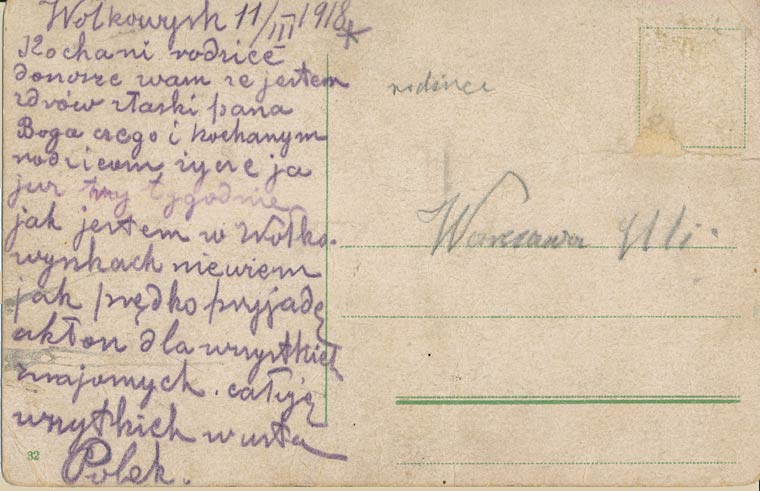 Wolkowysk 11/III 1918
Kochani rodzice
donosze wam ze jestem
zdrów złaski pana
Boga czego i kochanym
rodzicom życze ja
juz trzy tygodnie
jak jestem w Wołko-
wyskach niewiem
jak prędko przyjadę
ukłon dla wszystkich
znajomych. całuję
wszytkich w usta
Polek.
32
rodzice
Warszawa Uli